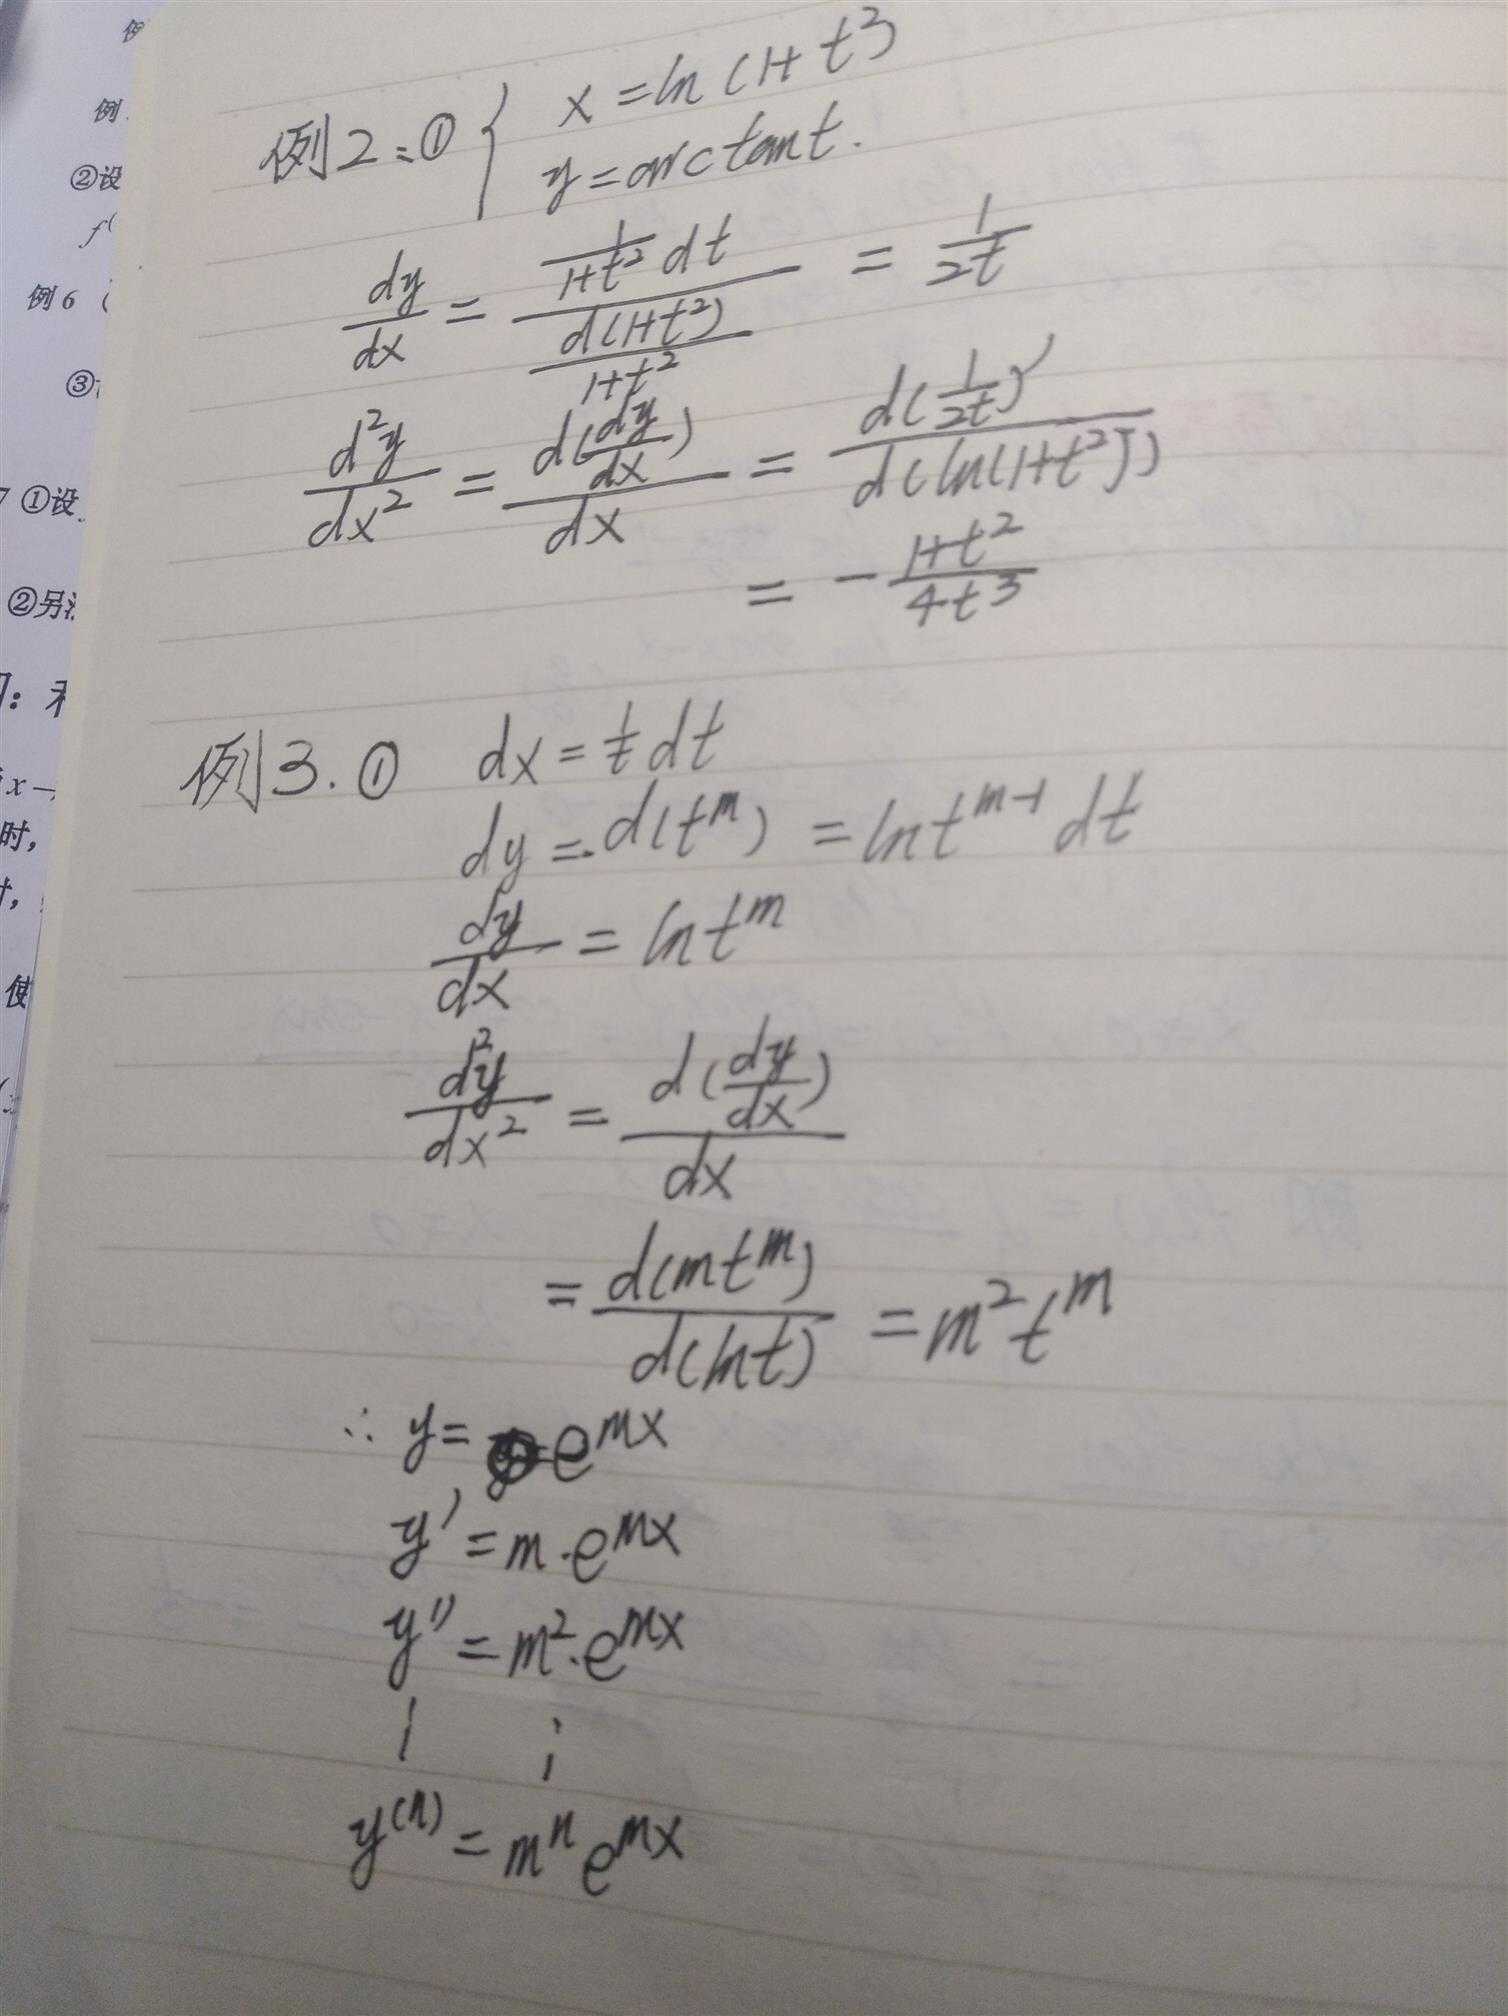 例
例
②设
f(
例 6 (
③
7 ①设
②另
x
时,
例2:① { x = ln(1+t²)
y = arctant.
dy/dx = (1/(1+t²) dt)/(d(1+t²)/(1+t²)) = 1/2t
d²y/dx² = d(dy/dx)/dx = d(1/2t)/d(ln(1+t²))
= -(1+t²)/4t³
例3. ① dx = 1/t dt
dy = d(t^m) = lnt^(m-1) dt
dy/dx = lnt^m
d²y/dx² = d(dy/dx)/dx
= d(mt^m)/d(lnt) = m²t^m
∴ y = e^(mx)
y' = m·e^(mx)
y'' = m²·e^(mx)
⋮ ⋮
y^(n) = m^n e^(mx)